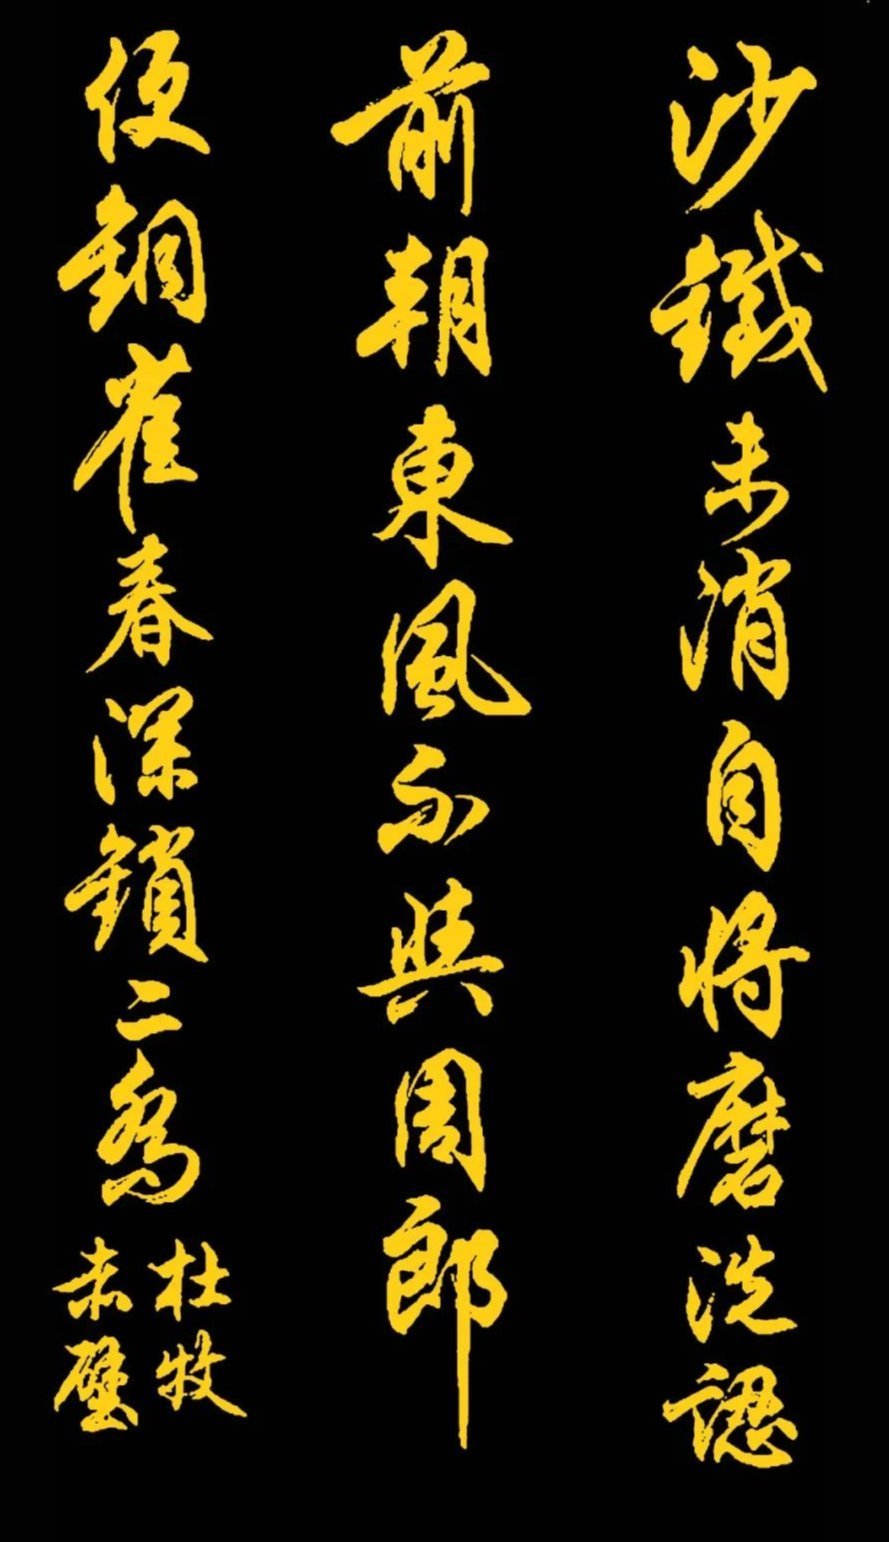 沙鐵未消自将磨洗認
前朝東風不與周郎
便銅雀春深鎖二喬
杜牧
赤壁